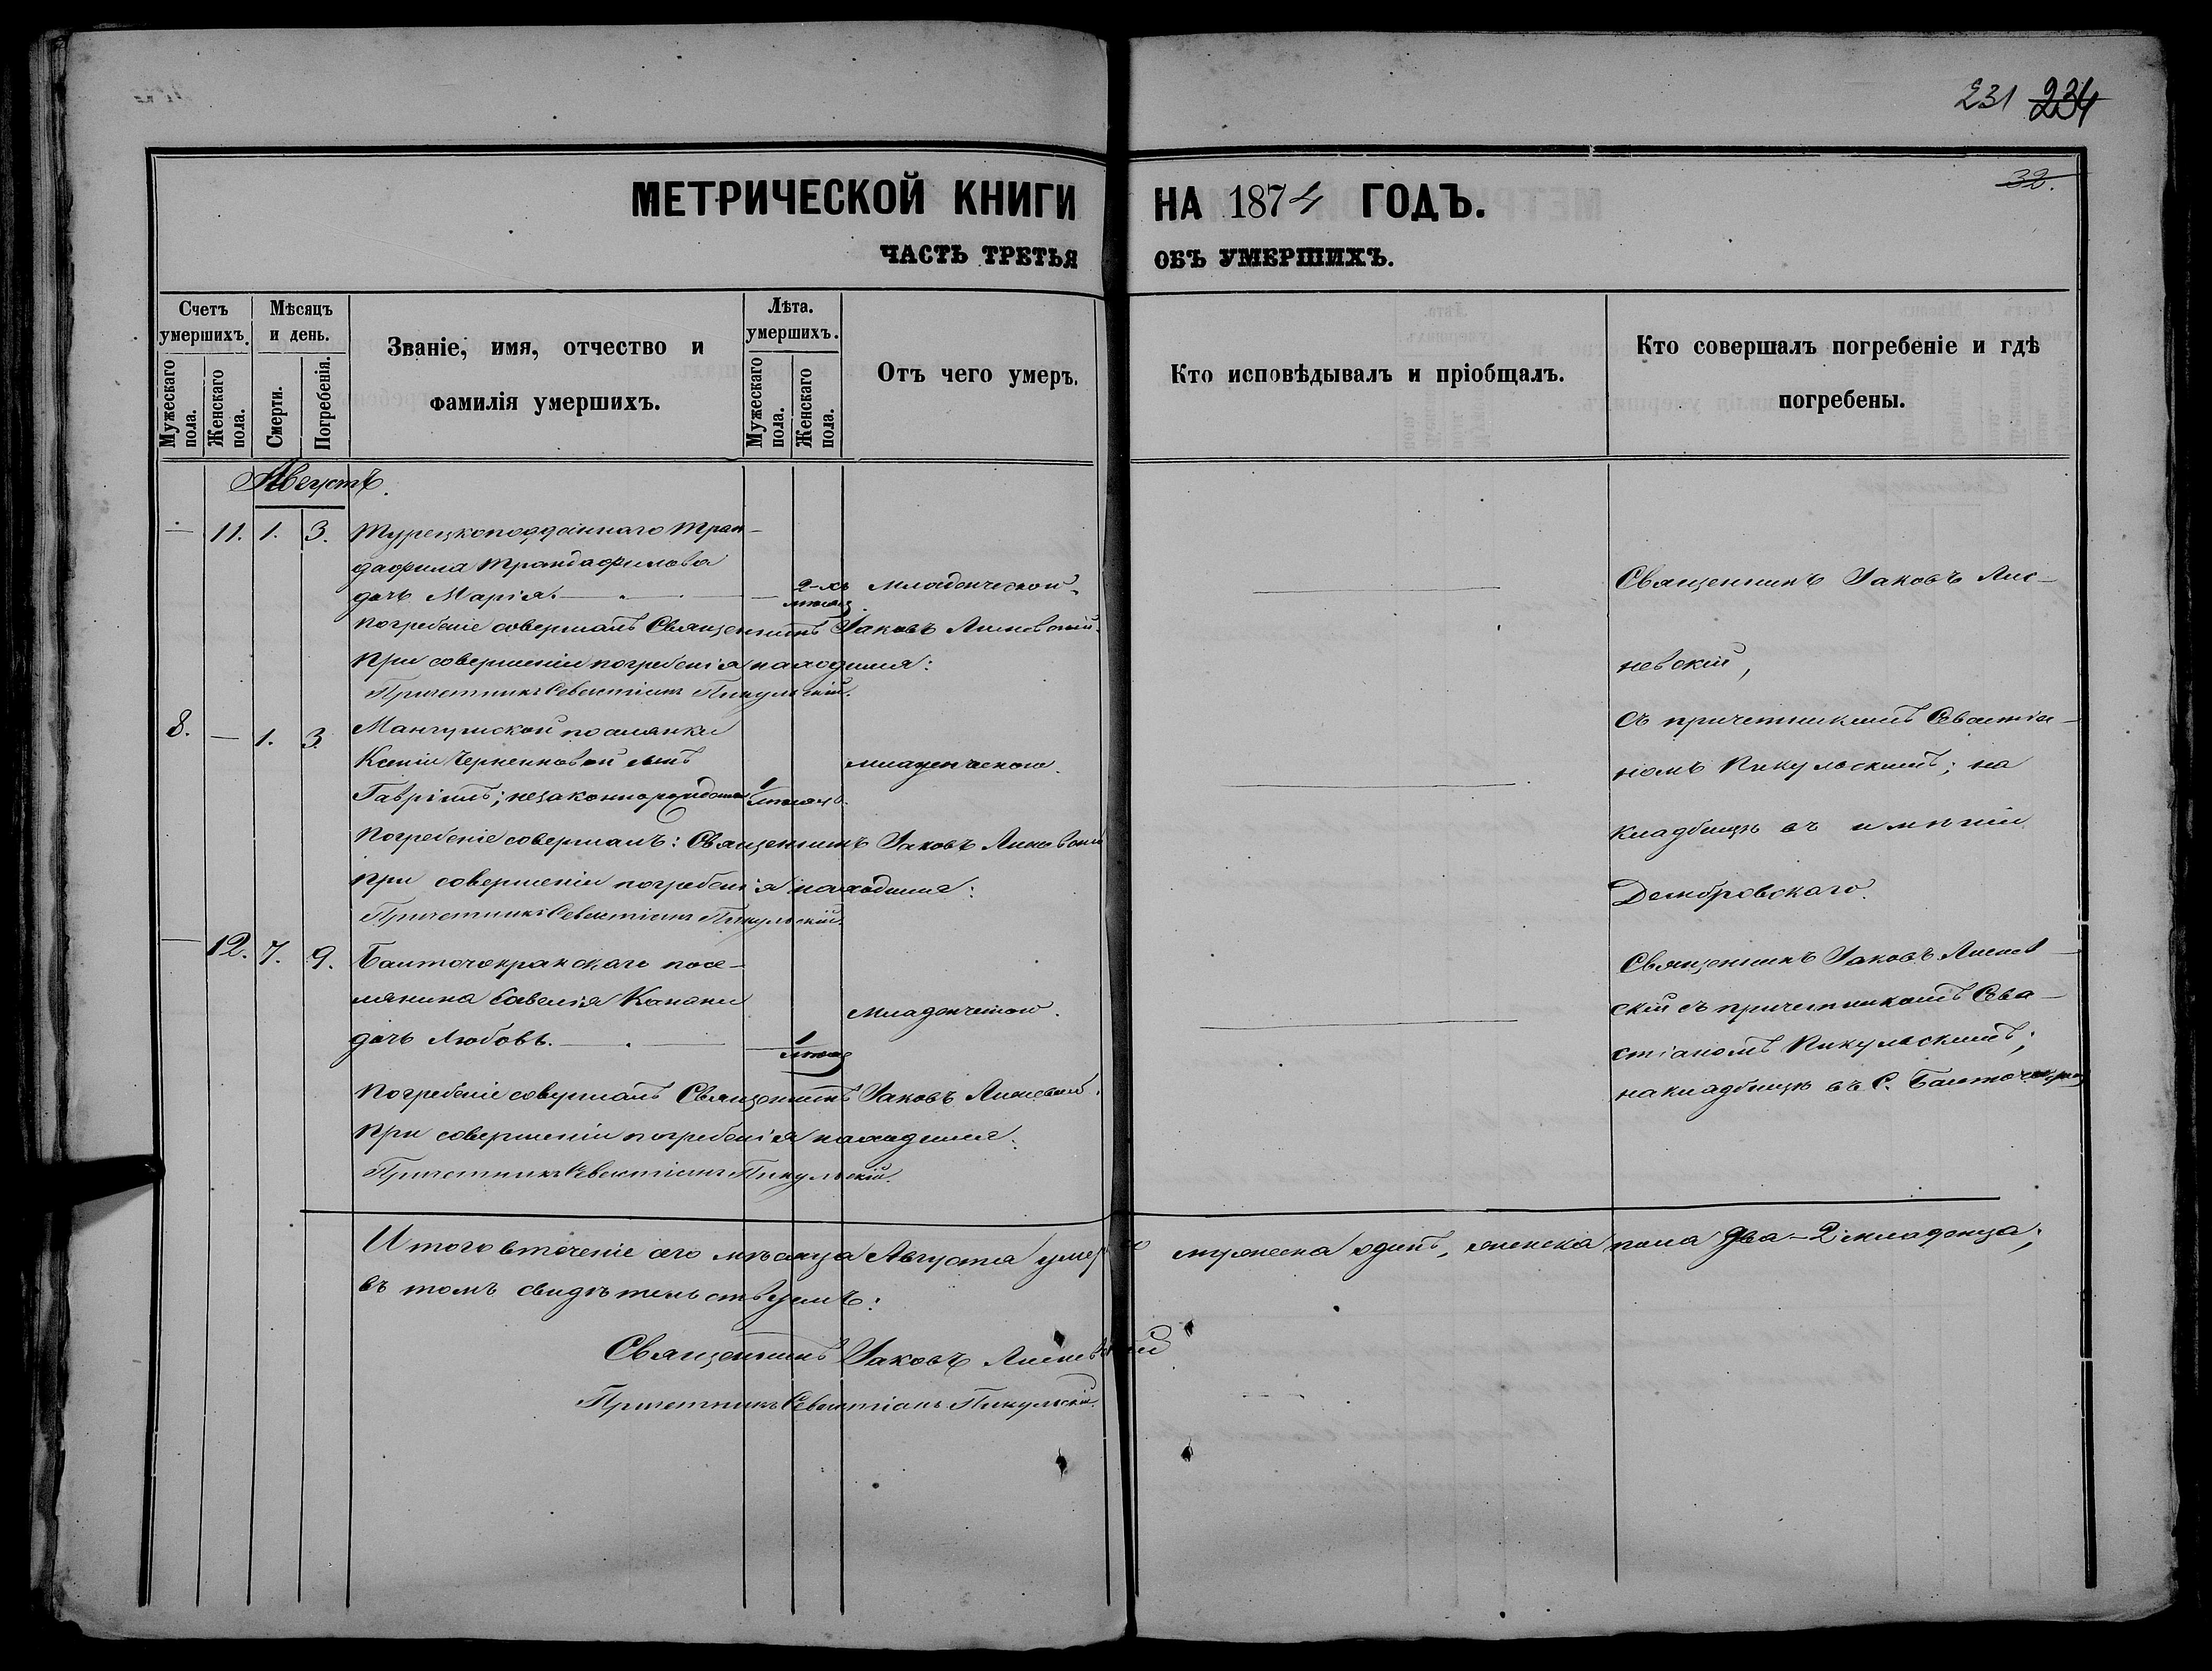 231 234
32.
МЕТРИЧЕСКОЙ КНИГИ НА 1874 ГОДЪ.
ЧАСТЬ ТРЕТЬЯ ОБЪ УМЕРШИХЪ.
Счетъ умершихъ.
Мужескаго пола.
Женскаго пола.
Мѣсяцъ и день.
Смерти.
Погребенія.
Званіе, имя, отчество и
фамилія умершихъ.
Лѣта умершихъ.
Мужескаго пола.
Женскаго пола.
Отъ чего умеръ.
Кто исповѣдывалъ и пріобщалъ.
Кто совершалъ погребеніе и гдѣ
погребены.
Августъ.
— 11. 1. 3. Турецкоподданнаго Тран-
дафила Трандафилова
дочь Марія. — 2-хъ мѣсяц. младенческой
Погребеніе совершалъ Священникъ Іаковъ Линевскій.
При совершеніи погребенія находился:
Причетникъ Севастіанъ Пикульскій.
Священникъ Іаковъ Ли-
невскій,
съ причетникомъ Севастіа-
номъ Пикульскимъ; на
кладбищѣ въ имѣніи
Домбровскаго.
8. — 1. 3. Мангушской поселянки
Ксеніи Черненковой сынъ
Гавріилъ; незаконнорожден 1 мѣсяцъ. младенческою.
Погребеніе совершалъ: Священникъ Іаковъ Линевскій
При совершеніи погребенія находился:
Причетникъ Севастіанъ Пикульскій.
— 12. 7. 9. посе-
лянина Савелія
дочь Любовь. — 1 мѣсяц младенческою.
Погребеніе совершалъ Священникъ Іаковъ Линевскій.
При совершеніи погребенія находился:
Причетникъ Севастіанъ Пикульскій.
Священникъ Іаковъ Линев-
скій съ причетникомъ Сева-
стіаномъ Пикульскимъ;
на кладбищѣ въ С.
Итого втеченіе сего мѣсяца Августа умерло мужеска одинъ, женска пола два - 2 младенца;
въ томъ свидѣтельствуемъ:
Священникъ Іаковъ Линевскій
Причетникъ Севастіанъ Пикульскій.